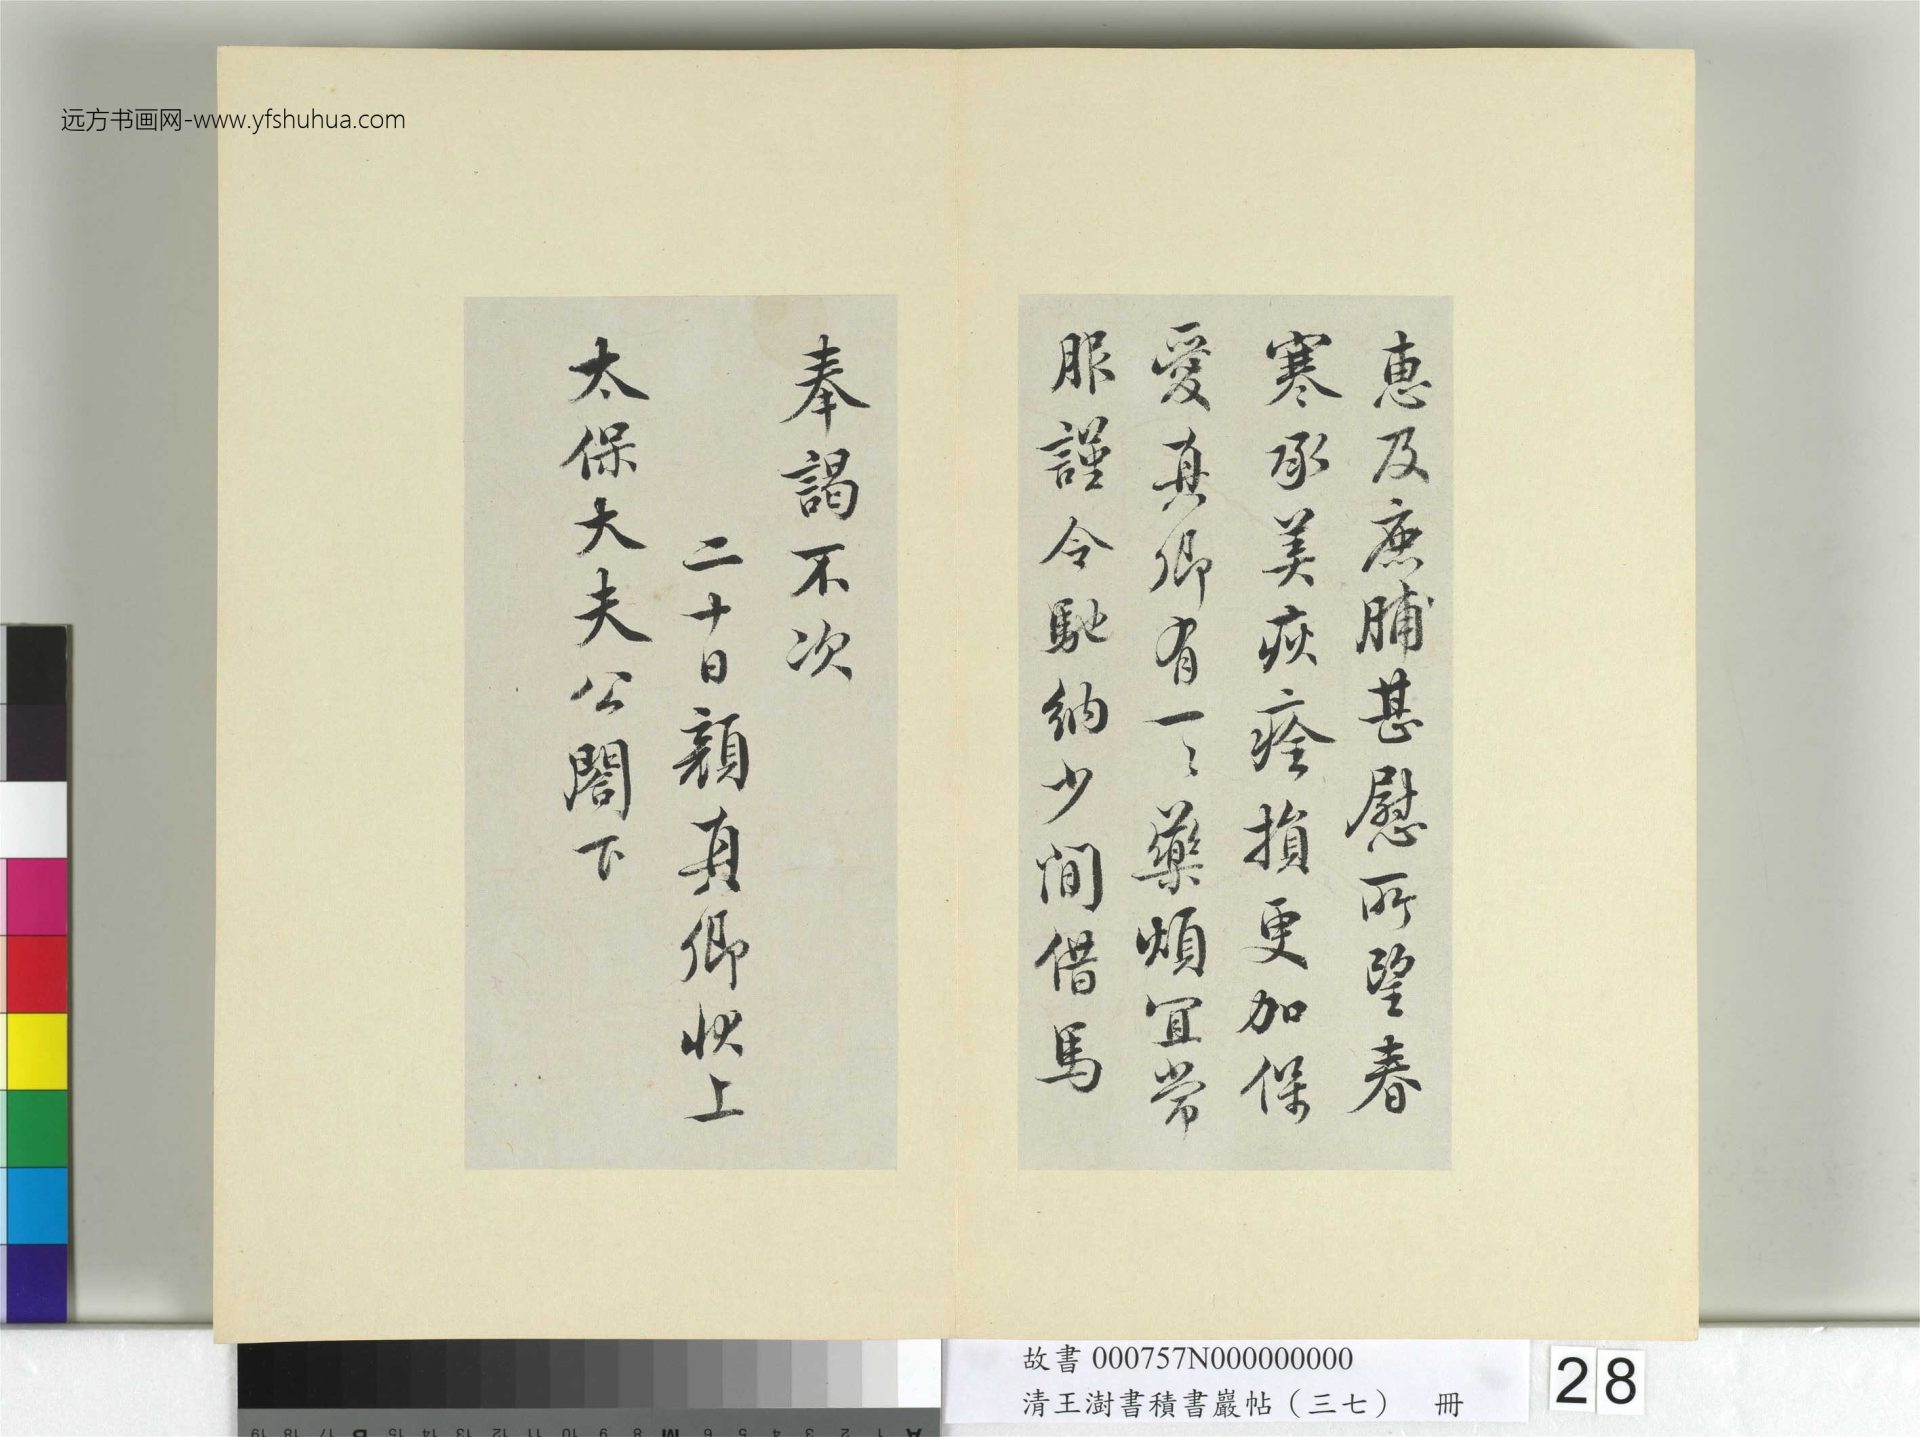 远方书画网-www.yfshuhua.com
惠及鹿脯甚慰所望春
寒承美疢痊損更加保
愛真卿有一〻藥煩宜常
服謹令馳納少間借馬
奉謁不次
二十日顏真卿狀上
太保大夫公閤下
故書 000757N000000000
清王澍書積書巖帖（三七） 冊
28